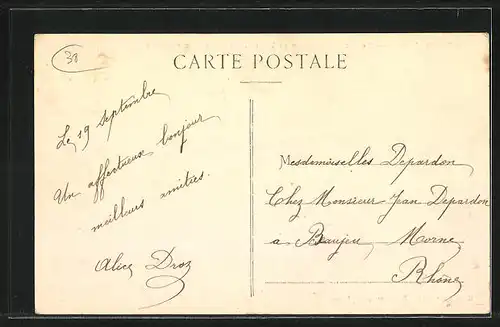 30
CARTE POSTALE
Le 19 Septembre
Un affectueux bonjour
meilleurs amitiés.
Alice Droz
Mesdemoiselles Depardon
Chez Monsieur Jean Depardon
a Beaujeu Morne
Rhône